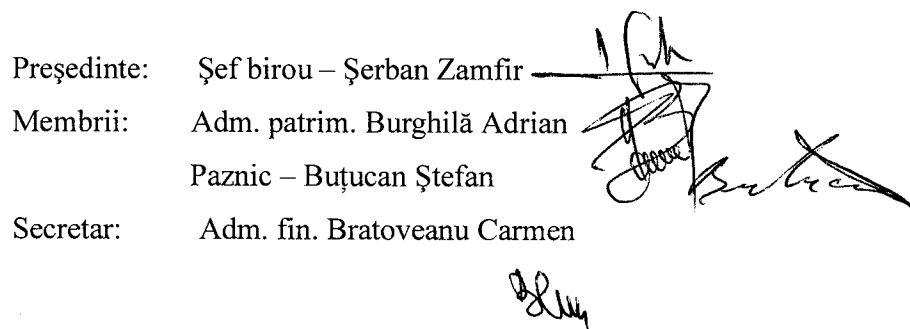 Preşedinte: Şef birou – Şerban Zamfir
Membrii: Adm. patrim. Burghilă Adrian
Paznic – Buţucan Ştefan
Secretar: Adm. fin. Bratoveanu Carmen